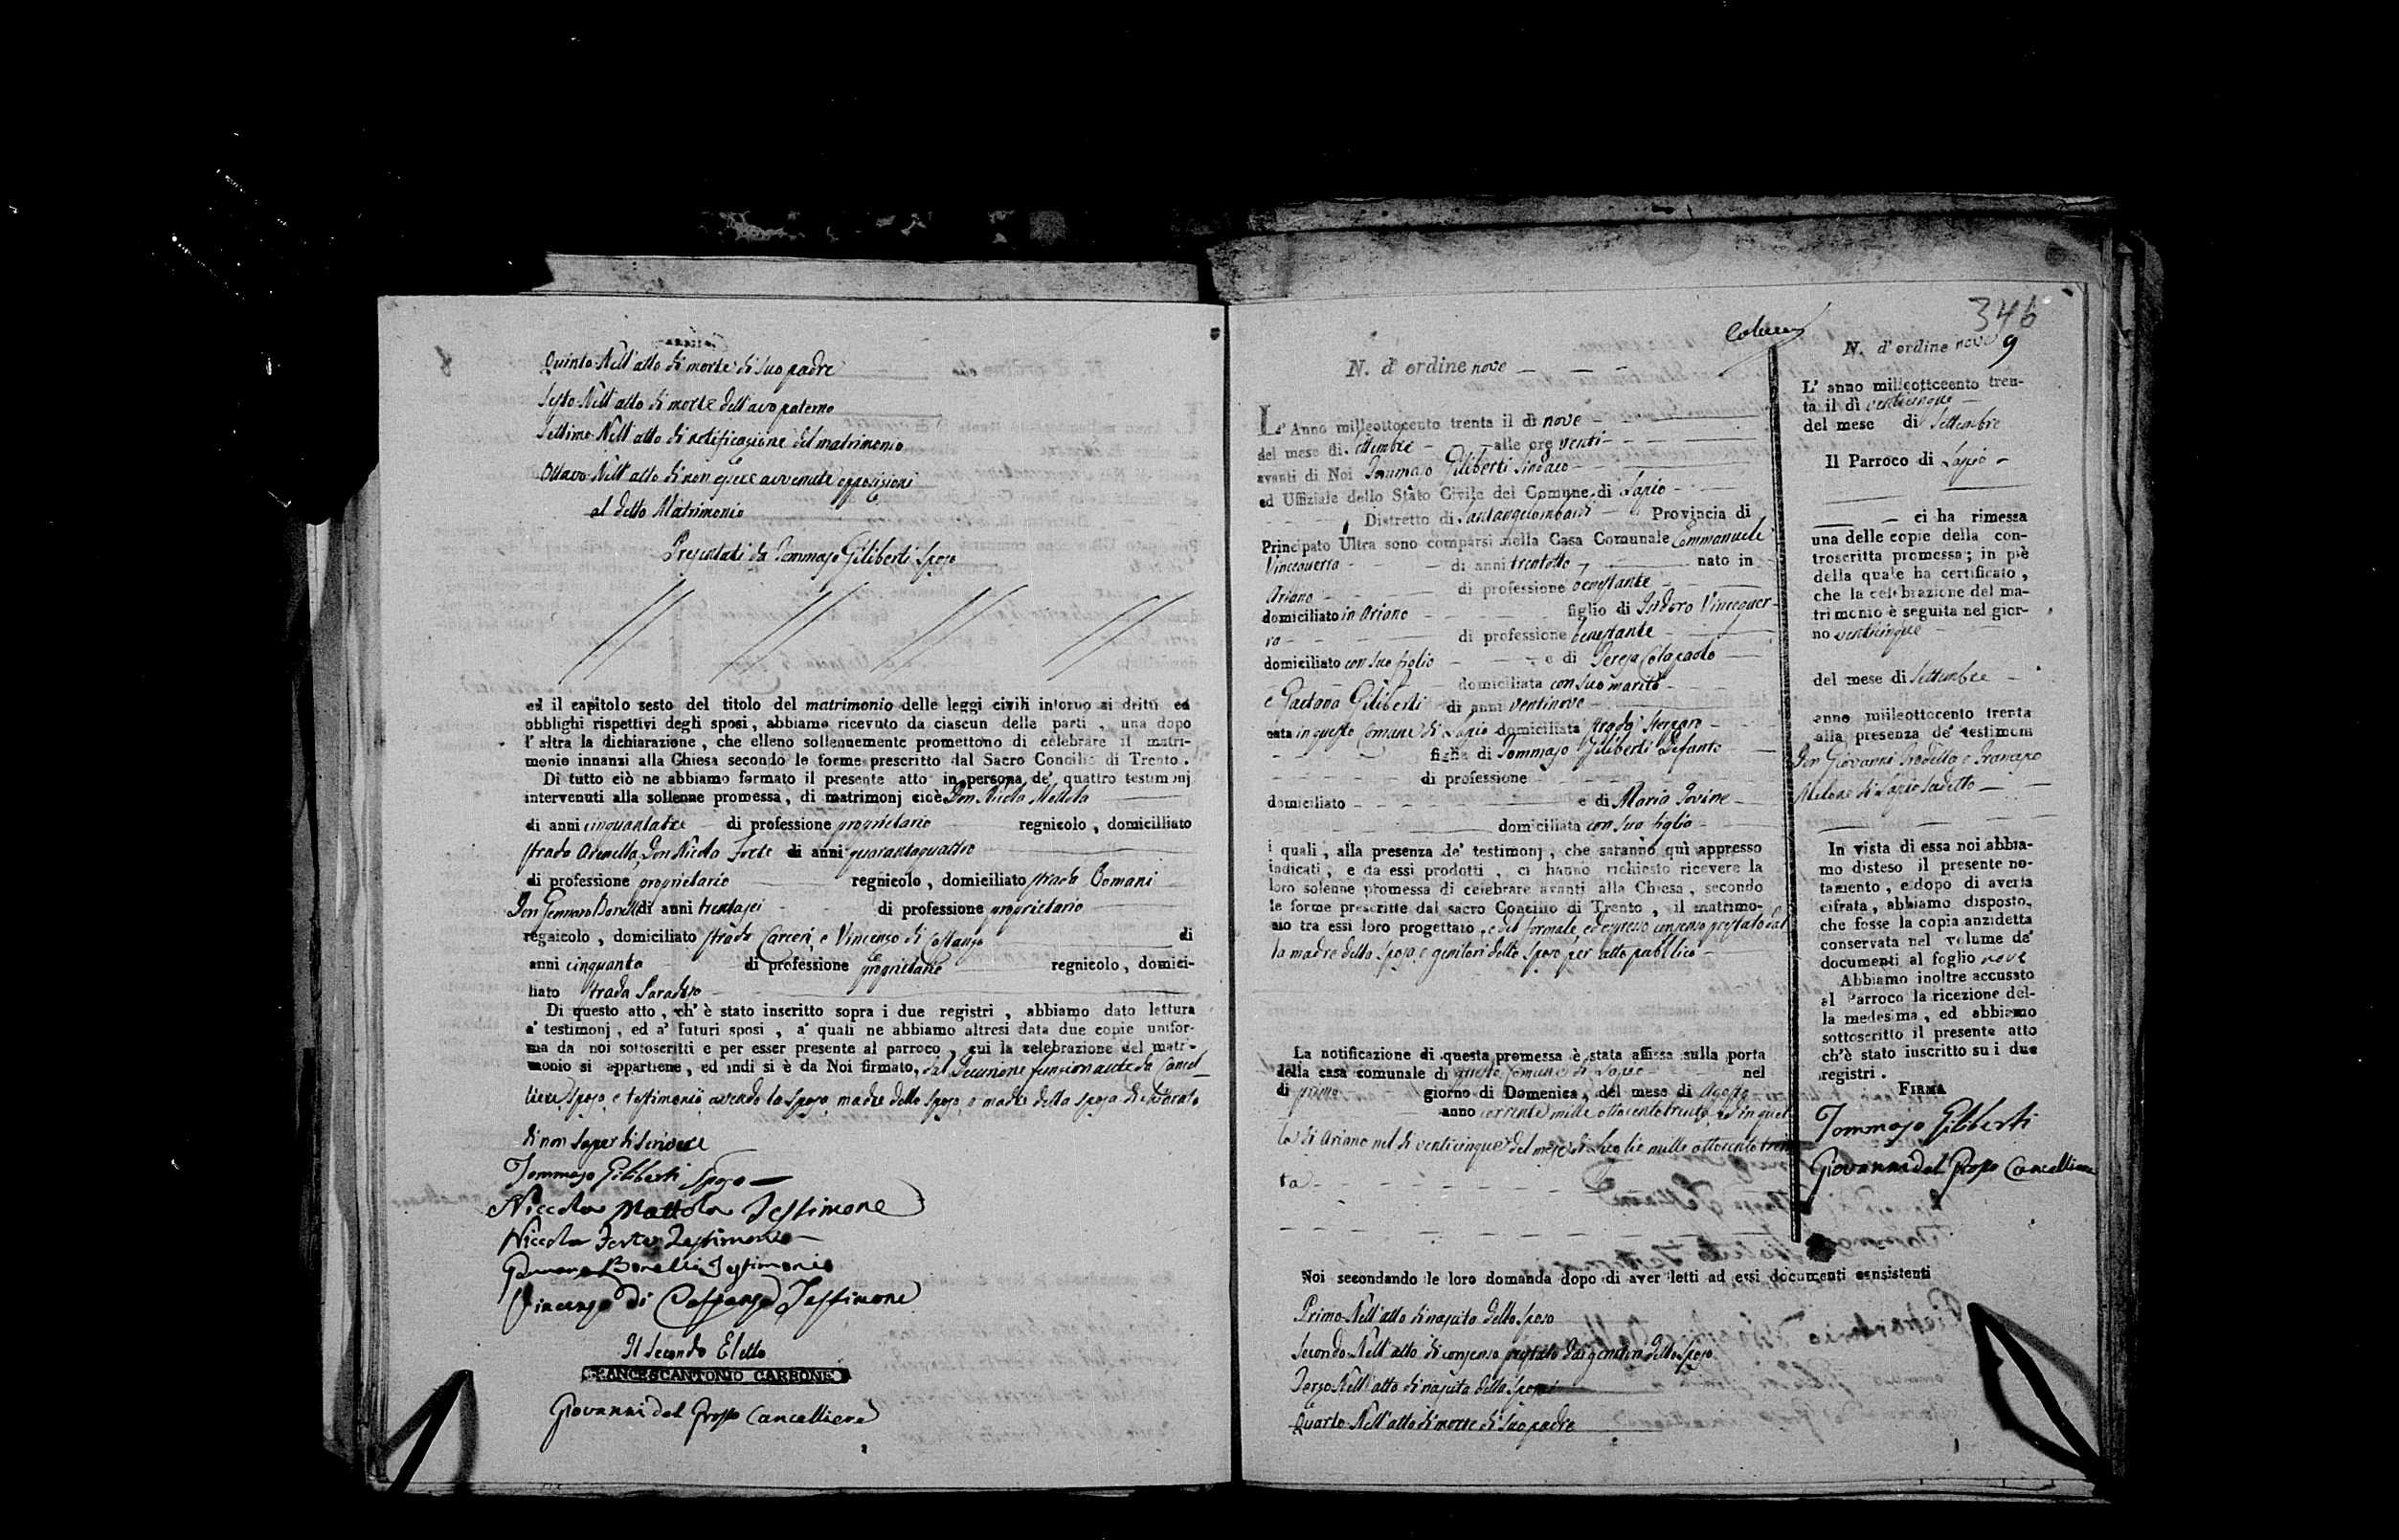 Quinto Nell'atto di morte di suo padre
Sesto Nell'atto di morte dell'avo paterno
Settimo Nell'atto di notificazione del matrimonio
Ottavo Nell'atto di non essere avvenute opposizioni
al detto Matrimonio
Presentati da Tommaso Giliberti Sposo
ed il capitolo sesto del titolo del matrimonio delle leggi civili intorno ai dritti ed
obblighi rispettivi degli sposi, abbiamo ricevuto da ciascun delle parti, una dopo
l'altra la dichiarazione, che elleno sollennemente promettono di celebrare il matri-
monio innanzi alla Chiesa secondo le forme prescritto dal Sacro Concilio di Trento.
Di tutto ciò ne abbiamo formato il presente atto in persona de' quattro testimonj
intervenuti alla sollenne promessa, di matrimonj cioè Don Nicola Mottola
di anni cinquantatre di professione proprietario regnicolo, domicilliato
strada Don Nicola Forte di anni quarantaquattro
di professione proprietario regnicolo, domiciliato strada
Don Gennaro Borelli di anni trentasei di professione proprietario
regnicolo, domiciliato strada Carceri, e Vincenzo di Costanzo di
anni cinquanta di professione proprietario regnicolo, domici-
liato strada Paradiso
Di questo atto, ch'è stato inscritto sopra i due registri, abbiamo dato lettura
a' testimonj, ed a' futuri sposi, a' quali ne abbiamo altresi data due copie unifor-
ma da noi sottoscritti e per esser presente al parroco, cui la celebrazione del matri-
monio si appartiene, ed indi si è da Noi firmato, dal Decurione funzionante da Cancel-
liere, sposo, e testimonii avendo la sposa, madre dello sposo, e madre della sposa dichiarato
di non saper di scrivere
Tommaso Giliberti Sposo
Niccola Mottola Testimone
Niccola Forte Testimonio
Gennaro Borelli Testimonio
Vincenzo di Costanzo Testimone
Il Secondo Eletto
FRANCESCANTONIO CARBONE
Giovanni del Grosso Cancelliere
346
N. d'ordine nove
L'Anno milleottocento trenta il dì nove
del mese di Settembre alle ore venti
avanti di Noi Tommaso Giliberti Sindaco
ed Uffiziale dello Stato Civile del Comune di Lapio
Distretto di Santangelombardi Provincia di
Principato Ultra sono comparsi nella Casa Comunale Emmanuele
Vinceguerra di anni trentotto nato in
Ariano di professione benestante
domiciliato in Ariano figlio di Isidoro Vinceguer-
ra di professione benestante
domiciliato con suo figlio e di Teresa Colapaolo
domiciliata con suo marito
e Gaetana Giliberti di anni ventinove
nata in questo Comune di Lapio domiciliata strada
figlia di Tommaso Giliberti Defunto
di professione
domiciliato e di Maria Iovine
domiciliata con sua figlia
i quali, alla presenza de' testimonj, che saranno qui appresso
indicati, e da essi prodotti, ci hanno richiesto ricevere la
loro solenne promessa di celebrare avanti alla Chiesa, secondo
le forme prescritte dal sacro Concilio di Trento, il matrimo-
nio tra essi loro progettato, e del formale, ed espresso consenso prestato dal
la madre della sposa, e genitori dello sposo per atto pubblico
La notificazione di questa promessa è stata affissa sulla porta
della casa comunale di questo Comune di Lapio nel
dì primo giorno di Domenica, del mese di Agosto
anno corrente mille ottocentotrenta, ed in quel
la di Ariano nel dì venticinque del mese di Luglio mille ottocento tren
ta
Noi secondando le loro domanda dopo di aver letti ad essi documenti consistenti
Primo Nell'atto di nascita dello sposo
Secondo Nell'atto di consenso prestato dai genitori dello sposo
Terzo Nell'atto di nascita della sposa
Quarto Nell'atto di morte di suo padre
N. d'ordine nove 9
L'anno milleottocento tren-
ta il dì venticinque
del mese di Settembre
Il Parroco di Lapio
ci ha rimessa
una delle copie della con-
troscritta promessa; in piè
della quale ha certificato,
che la celebrazione del ma-
trimonio è seguita nel gior-
no venticinque
del mese di Settembre
anno milleottocento trenta
alla presenza de' testimoni
Don Giovanni e Francesco
Melone di Lapio
In vista di essa noi abbia-
mo disteso il presente no-
tamento, e dopo di averla
cifrata, abbiamo disposto,
che fosse la copia anzidetta
conservata nel volume de'
documenti al foglio nove
Abbiamo inoltre accusato
al Parroco la ricezione del-
la medesima, ed abbiamo
sottoscritto il presente atto
ch'è stato inscritto su i due
registri.
FIRMA
Tommaso Giliberti
Giovanni del Grosso Cancelliere